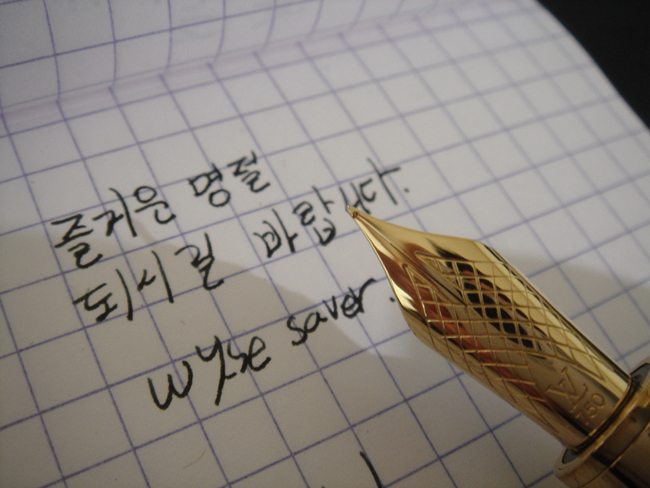 즐거운 명절
되시길 바랍니다.
wyse saver.
750